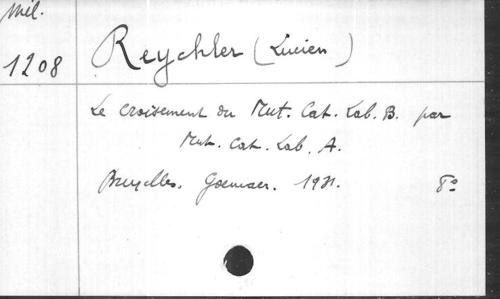 Mél.
1208
Reychler (Lucien)
Le Croisement du Mut. Cat. Lab. B. par
Mut. Cat. Lab. A.
Bruxelles. Goemaer. 1931. 8°